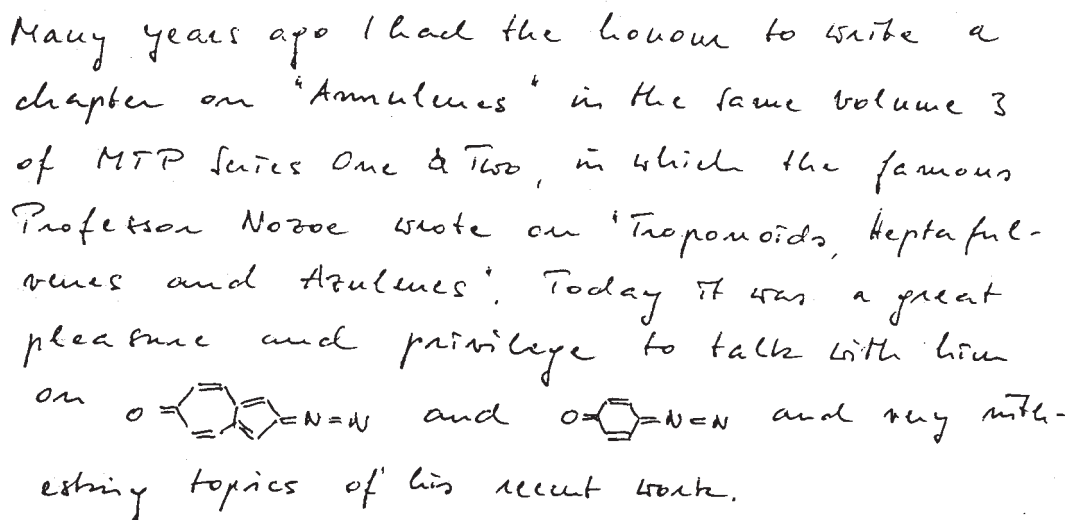 Many years ago I had the honour to write a
chapter on "Annulenes" in the same volume 3
of MTP Series One & Two, in which the famous
Professor Nozoe wrote on "Troponoids, Heptaful-
venes and Azulenes". Today it was a great
pleasure and privilege to talk with him
on O= =N=N and O= =N=N and very inte-
resting topics of his recent work.